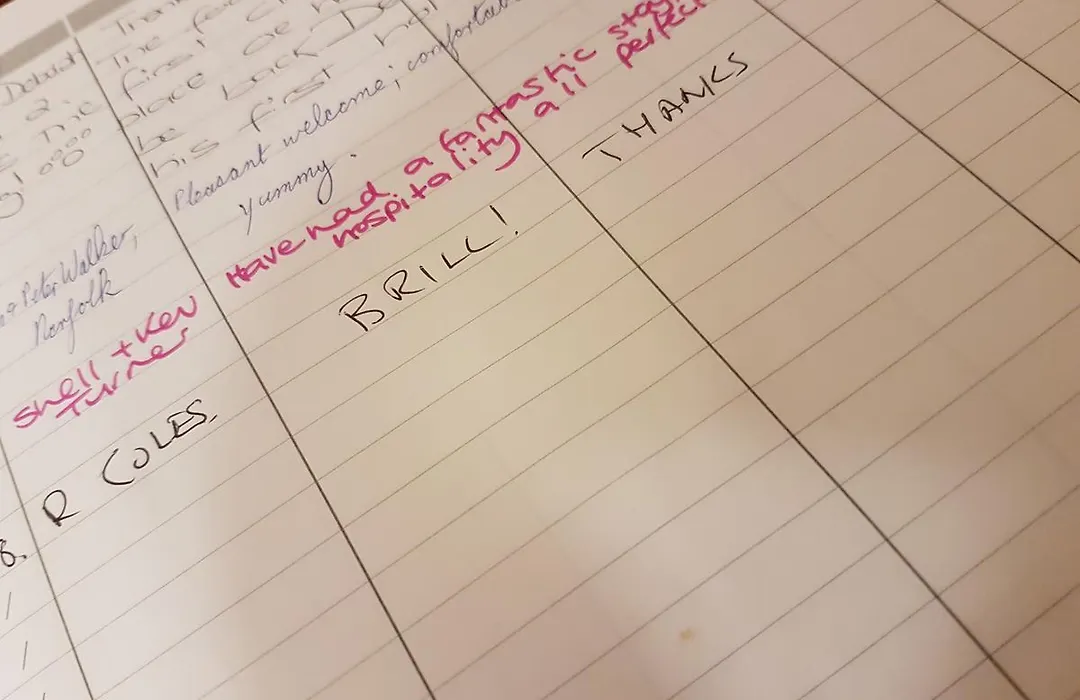 Debut
2
The
first
place back
he
his first
Pleasant welcome; comfortab
yummy.
Peter Walker,
Norfolk
Have had a fantastic stay
hospitality all perfect
shell + Kev
Turner
BRILL!
THANKS
R COLES.
8.